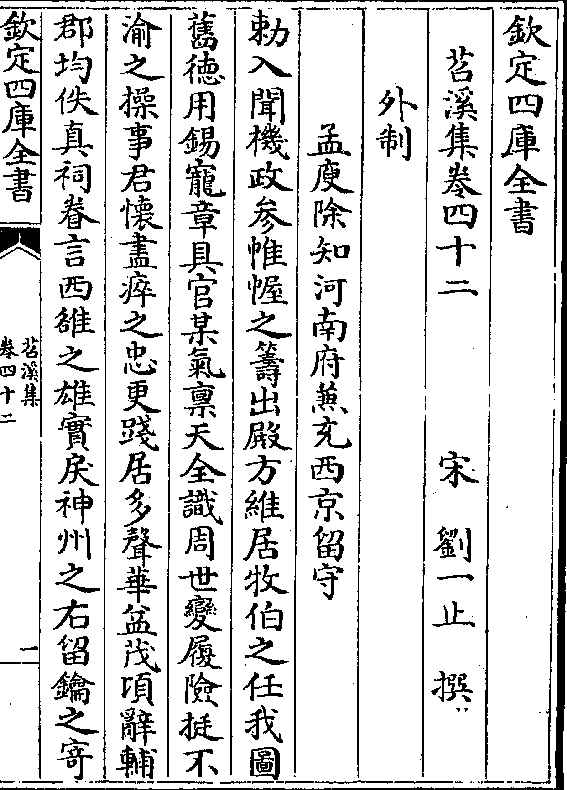 欽定四庫全書
苕溪集卷四十二 宋 劉一止 撰
外制
孟庾除知河南府兼充西京留守
勅入聞機政參帷幄之籌出殿方維居牧伯之任我圖
舊德用錫寵章具官某氣禀天全識周世變履險挺不
渝之操事君懷盡瘁之忠更踐居多聲華益茂項辭輔
郡均佚真祠眷言西雒之雄實戾神州之右留鑰之寄
欽定四庫全書
苕溪集
卷四十二
一